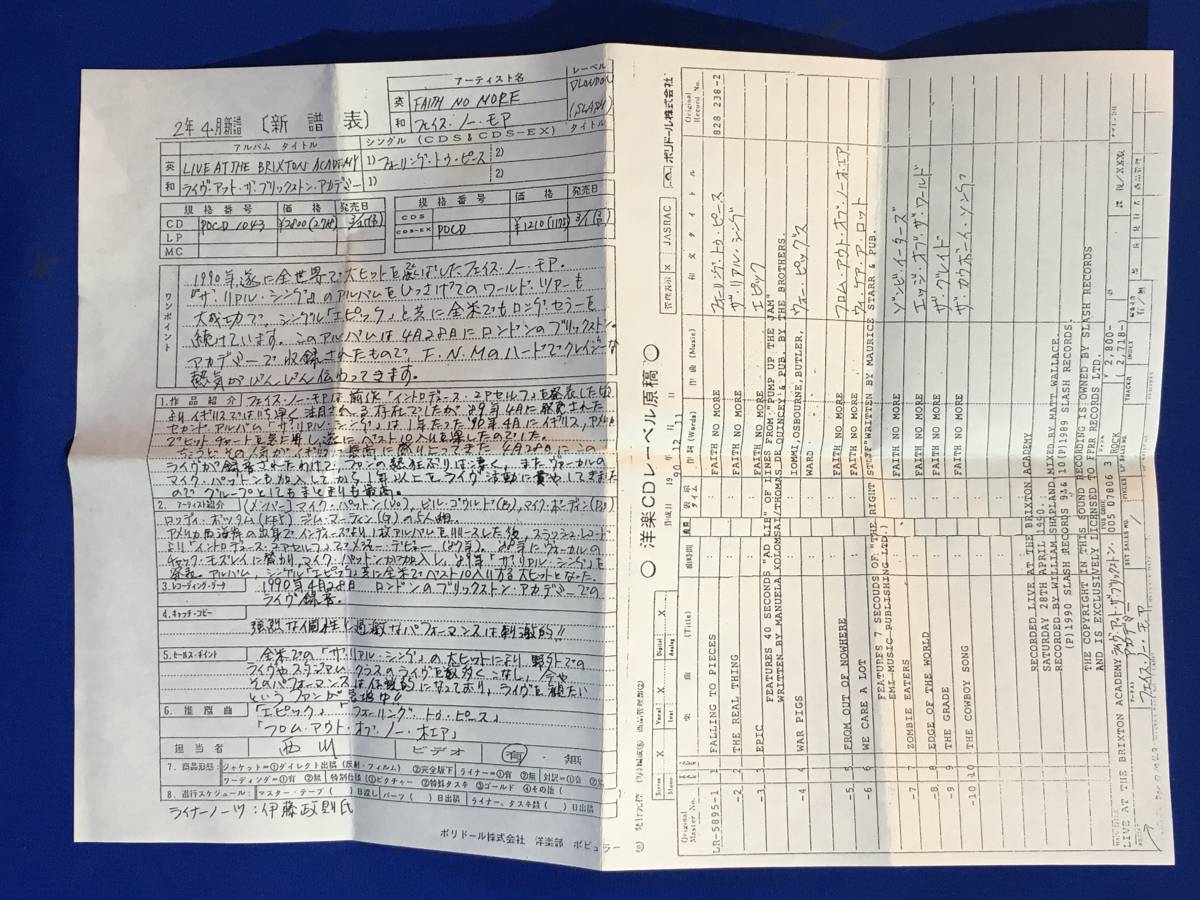 2年4月新譜 〔新譜表〕
アーティスト名
レーベル
英 FAITH NO MORE
LONDON
(SLASH)
和 フェイス・ノー・モア
アルバム タイトル
シングル (CDS & CDS-EX) タイトル
英 LIVE AT THE BRIXTON ACADEMY
1) フォーリング・トゥ・ピース 2)
和 ライヴ・アット・ザ・ブリックストン・アカデミー
1) 2)
規格番号 価格 発売日
規格番号 価格 発売日
CD POCD 1043 ¥2800(2718)
CDS
LP
CDS-EX POCD ¥1210
MC
ワンポイント
1990年遂に全世界で大ヒットを飛ばしたフェイス・ノー・モア。
『ザ・リアル・シング』のアルバムをひっさげてのワールド・ツアーも
大成功で、シングル「エピック」と共に全米でもロング・セラーを
続けています。このアルバムは4月28日にロンドンのブリックストン・
アカデミーで収録されたもので、F.N.Mのハードでクレイジーな
熱気がびんびん伝わってきます。
1.作品紹介 フェイス・ノー・モアは前作「イントロデュース・ユアセルフ」を発表した
よりイギリスではいち早く注目されてる存在でしたが、89年4月に発売された
セカンド・アルバム「ザ・リアル・シング」は1年たった'90年4月にイギリス、アメリカ
でヒットチャートを急上昇し、遂にベスト10入りを果したのでした。
ちょうどその人気がイギリスで最高に盛り上って 4月28日にこの
ライヴが録音されたわけで、ファンの熱狂ぶりは凄く、また、ヴォーカルの
マイク・パットンも加入してから1年以上をライヴ活動に費やしてきた
のでグループとしてもまとまりも最高。
2. アーティスト紹介 (メンバー) マイク・パットン(Vo)、ビル・ゴウルド(B)、マイク・ボーディン(Ds)
ロッディ・ボッタム(KEY) ジム・マーティン(G)の5人組。
アメリカ西海岸の出身でインディーズより1枚アルバムをリリースした後、スラッシュ・レコード
より「イントロデュース・ユアセルフ」でメジャー・デビュー(87年)。88年にヴォーカルの
チャック・モズレイに替わり、マイク・パットンが加入し、89年「ザ・リアル・シング」を
発表。アルバム、シングル「エピック」共に全米でベスト10入りする大ヒットとなった。
3.レコーディング・データ 1990年4月28日 ロンドンのブリックストン・アカデミーでの
ライヴ録音。
4.キャッチ・コピー
強烈な個性と過激なパフォーマンスは刺激的!!
5.セールス・ポイント 全米での「ザ・リアル・シング」の大ヒットにより野外での
ライヴやスタジアム・クラスのライヴを数多くこなし、今や
そのパフォーマンスは
になっており、ライヴを観たい
というファンが急増中!!
6. 推薦曲 「エピック」「フォーリング・トゥ・ピース」
「フロム・アウト・オブ・ノー・ホエア」
担当者 西山 ビデオ 有 無
7. 商品形態: ジャケットー①ダイレクト出稿(反射・フィルム) ②完全版下 ライナーー①有 ②無 対訳ー①有
ワーディングー①有 ②無 特別仕様 ①ピクチャー ②特殊タスキ ③ゴールド ④その他(
8. 進行スケジュール: マスター・テープ( )日渡し パーツ( )日出稿 ライナー、タスキ類( )日出稿
ライナーノーツ:伊藤政則氏
ポリドール株式会社 洋楽部 ポピュラー
○ 洋楽CDレーベル原稿 ○
作成日 1990年12月11日
管理表示 X JASRAC
ポリドール株式会社
Stereo X Vocal X Digital X
Mono Inst Analog
Original Master No.
楽曲 (Title)
作詞 (Words)
作曲 (Music)
和文タイトル
Original Record No.
828 238-2
LR-5895-1 1 FALLING TO PIECES FAITH NO MORE フォーリング・トゥ・ピース
-2 THE REAL THING FAITH NO MORE ザ・リアル・シング
-3 EPIC FAITH NO MORE エピック
FEATURES 40 SECONDS "AD LIB" OF LINES FROM "PUMP UP THE JAM"
WRITTEN BY MANUELA KOLOMSAI/THOMAS DE QUINCEY & PUB. BY THE BROTHERS.
-4 WAR PIGS IOMMI, OSBOURNE, BUTLER, ウォー・ピッグス
WARD.
-5 FROM OUT OF NOWHERE FAITH NO MORE フロム・アウト・オブ・ノーホエア
-6 WE CARE A LOT FAITH NO MORE ウィ・ケア・ア・ロット
FEATURES 7 SECOUDS OF "THE RIGHT STUFF" WRITTEN BY MAURICE STARR & PUB.
EMI-MUSIC PUBLISHING LTD.)
-7 ZOMBIE EATERS FAITH NO MORE ゾンビ・イーターズ
-8 EDGE OF THE WORLD FAITH NO MORE エッジ・オブ・ザ・ワールド
-9 THE GRADE FAITH NO MORE ザ・グレイド
-10 THE COWBOY SONG FAITH NO MORE ザ・カウボーイ・ソング
RECORDED LIVE AT THE BRIXTON ACADEMY
SATURDAY 28TH APRIL 1990.
RECORDED BY WILLIAM SHAPLAND, MIXED BY MATT WALLACE.
(P)1990 SLASH RECORDS 9&10(P)1989 SLASH RECORDS.
THE COPYRIGHT IN THIS SOUND RECORDING IS OWNED BY SLASH RECORDS
AND IS EXCLUSIVELY LICENSED TO FFRR RECORDS LTD.
LIVE AT THE BRIXTON ACADEMY ライヴ・アット・ザ・ブリックストン・アカデミー
005 07806 3 ROCK
2,800-
( 2,718-)
フェイス・ノー・モア